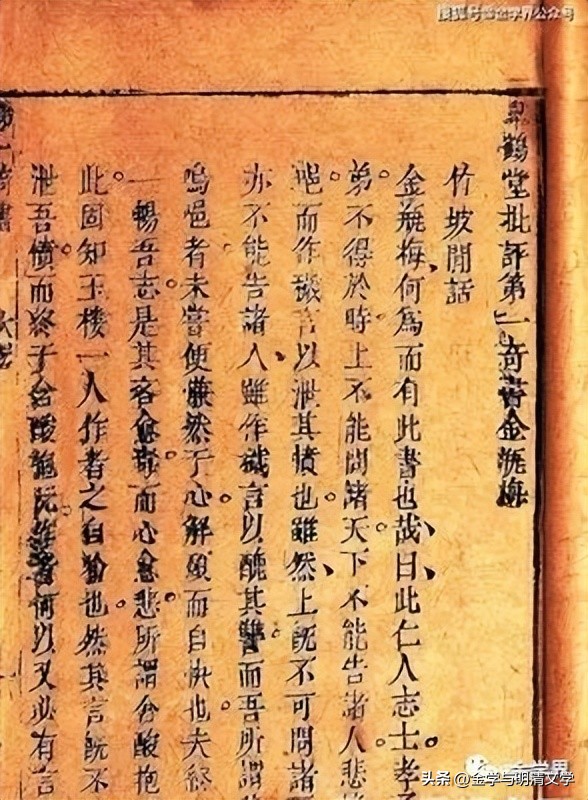 搜狐号@金学界公众号
臯鶴堂批評第一奇書金瓶梅
竹坡閒話
金瓶梅何爲而有此書也哉曰此仁人志士孝子
弟不得於時上不能問諸天下不能告諸人悲
唈而作穢言以泄其憤也雖然上既不可問諸
亦不能告諸人雖作穢言以醜其讐而吾所謂
嗚唈者未嘗便慊然于心解頤而自快也夫終
一暢吾志是其言愈毒而心愈悲所謂含酸抱
此固知玉樓一人作者之自喻也然其言既不
泄吾憤而終于含酸抱阮作者何以又必有言
第一奇書
金学界
头条 @金学与明清文学